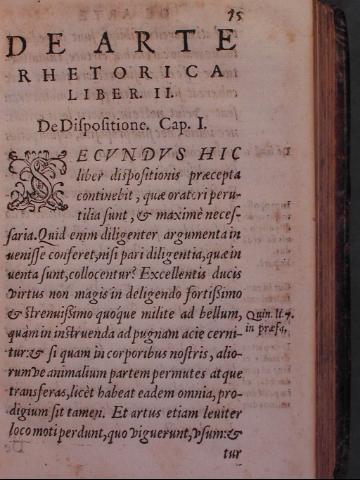 95
DE ARTE
RHETORICA
LIBER. II.
De Dispositione. Cap. I.
SECVNDVS HIC
liber dispositionis præcepta
continebit, quæ oratori peru-
tilia sunt, & maximè neces-
saria. Quid enim diligenter argumenta in
uenisse conferet, nisi pari diligentia, quæ in
uenta sunt, collocentur? Excellentis ducis
virtus non magis in deligendo fortissimo
& strenuissimo quoque milite ad bellum,
quàm in instruenda ad pugnam acie cerni
tur: & si quam in corporibus nostris, alio-
rumve animalium partem permutes atque
transferas, licèt habeat eadem omnia, pro-
digium sit tamen. Et artus etiam leuiter
loco moti perdunt, quo viguerunt, vsum: &
tur
Quin. li. 7.
in præfa.